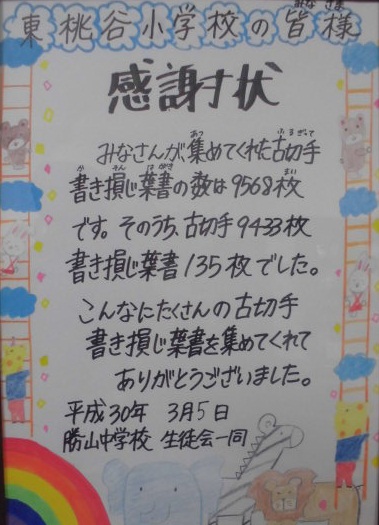 東桃谷小学校の皆様
感謝状
みなさんが、集めてくれた古切手
書き損じ葉書の数は9568枚
です。そのうち、古切手9433枚
書き損じ葉書135枚でした。
こんなにたくさんの古切手
書き損じ葉書を集めてくれて
ありがとうございました。
平成30年 3月5日
勝山中学校 生徒会一同